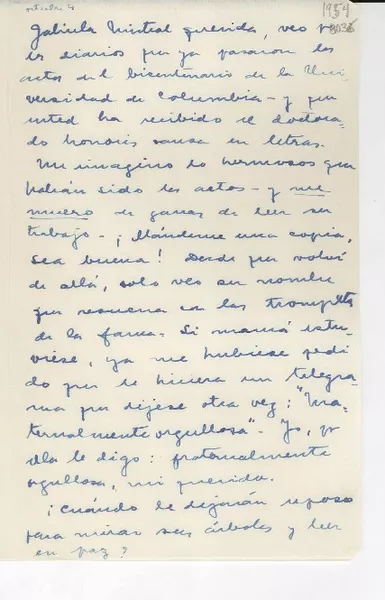 octubre 4
1954
Gabriela Mistral querida, veo por
los diarios que ya pasaron los
actos del bicentenario de la Uni
versidad de Columbia - y que
usted ha recibido el doctora-
do honoris causa en letras.
Me imagino lo hermosos que
habrán sido los actos - y me
muero de ganas de leer su
trabajo - ¡Mándeme una copia,
sea buena! Desde que volví
de allá, solo veo su nombre
que resuena con las trompetas
de la fama. Si mamá estu-
viese, ya me hubiese pedi-
do que le hiciera un telegra-
ma que dijese otra vez: "Ma-
ternalmente orgullosa" - Yo, por
ella le digo: fraternalmente
orgullosa, mi querida.
¡Cuándo le dejarán reposo
para mirar sus árboles y leer
en paz?